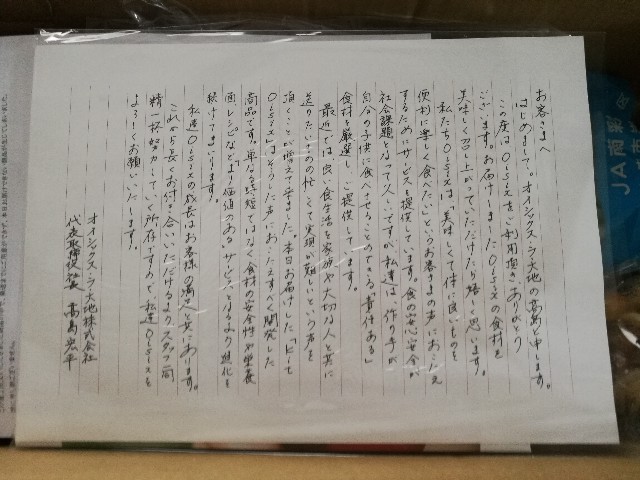 お客さまへ
はじめまして。オイシックス・ラ・大地の高島と申します。
この度はOisixをご利用頂きありがとう
ございます。お届けしましたOisixの食材を
美味しく召し上がっていただけたら嬉しく思います。
私たちOisixは、美味しくて体に良いものを
便利に楽しく食べたいというお客さまの声におこたえ
するためにサービスを提供しています。食の安心・安全が
社会課題となって久しいですが、私達は「作り手が
自分の子供に食べさせることのできる責任ある」
食材を厳選し、ご提供してます。
最近では、良い食生活を家族や大切な人と共に
送りたいものの忙しくて実現が難しいという声を
頂くことが増えて来ました。本日お届けした「Kit
Oisix」はそうした声におこたえすべく開発した
商品です。単なる時短ではなく食材の安全性や栄養
面・レシピなどより価値のあるサービスとなるよう進化を
続けてまいります。
私達Oisixの成長はお客様の満足と共にあります。
これから長くお付き合いいただけるよう、スタッフ一同
精一杯努力していく所存ですので、私達Oisixを
よろしくお願いいたします。
オイシックス・ラ・大地株式会社
代表取締役社長 高島宏平
JA南彩